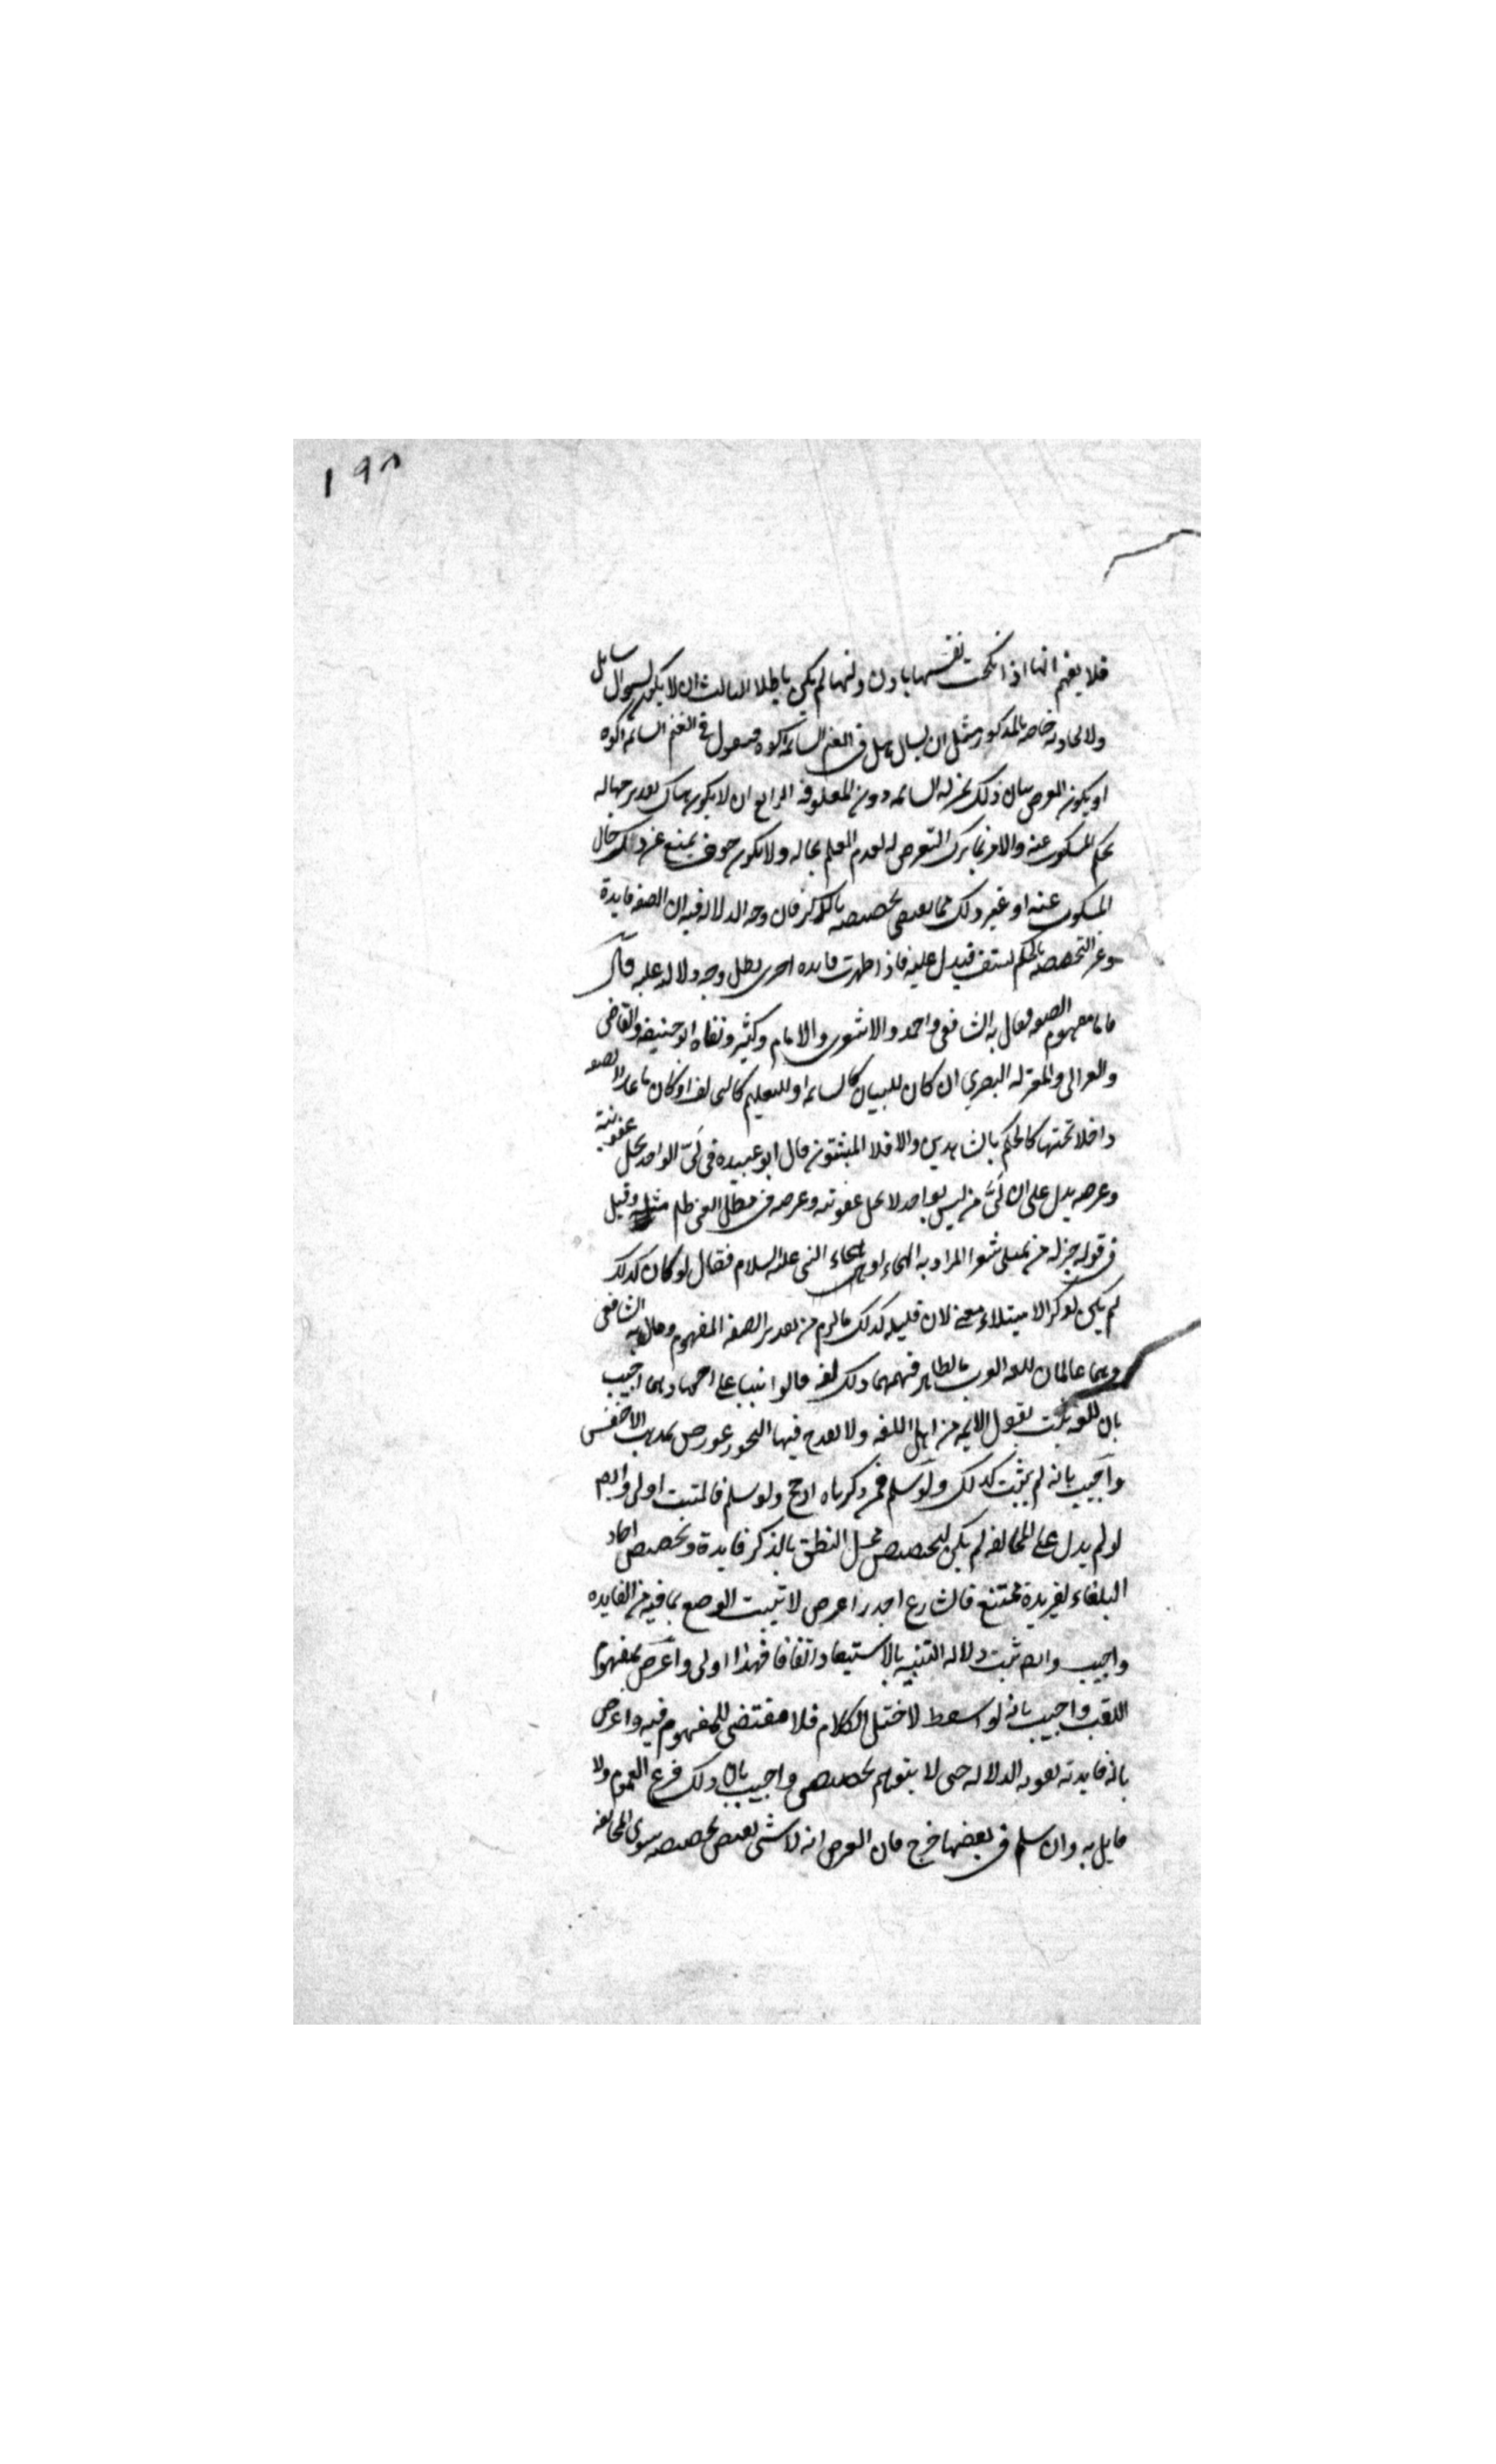 ١٩٨
فلا يفهم انها اذا نكحت نفسها باذن وليها لم يكن باطلا الثالث ان لا يكون لسوال سايل
ولا لحادثه خاصه بالمذكور مثل ان يسال هل في الغنم السائمه زكوه فيقول في الغنم السائمه زكوه
او يكون الغرض بيان ذلك لمن له السائمه دون المعلوفه الرابع ان لا يكون هناك تقدير جهاله
بحكم المسكوت عنه والا فربما ترك التعرض له لعدم العلم بحاله ولا يكون خوف يمنع عن ذكر حال
المسكوت عنه او غير ذلك مما يقتضى تخصيصه بالذكر فان وجه الدلاله فيه ان للصفه فايدة
وغير التخصيص بالحكم منتف فيدل عليه فاذا ظهرت فايده اخرى بطل وجه دلالته عليه قال
فاما مفهوم الصفه فقال به الشافعى واحمد والاشعرى والامام وكثير ونفاه ابو حنيفه والقاضى
والغزالى والمعتزله البصري ان كان للبيان كالسائمه او للتعليم كالتحالف او كان ما عدا الصفه
داخلا تحتها كالحكم بالشاهدين والا فلا المثبتون قال ابو عبيده فى لَىّ الواجد يحل عقوبته
وعرضه يدل على ان لَىّ من ليس بواجد لا يحل عقوبته وعرضه وفى مطل الغنى ظلم مثله وقيل
فى قوله خير له من ان يمتلى شعرا المراد به الهجاء او هجاء النبى عليه السلام فقال لو كان كذلك
لم يكن لذكر الامتلاء معنى لان قليله كذلك فالزم من تقدير الصفه المفهوم وقال به الشافعى
وهما عالمان بلغه العرب فالظاهر فهمهما ذلك لغه قالوا بنيا على اجتهادهما اجيب
بان اللغه تثبت بقول الايمه من اهل اللغه ولا يقدح فيها التجويز عورض بمذهب الاخفش
واجيب بانه لم يثبت كذلك ولو سلم فمن ذكرناه ارجح ولو سلم فالمثبت اولى وايضا
لو لم يدل على المخالفه لم يكن لتخصيص محل النطق بالذكر فايدة وتخصيص احاد
البلغاء لغير فايدة ممتنع فالشارع اجدر اعترض لا تثبت الوضع بما فيه من الفايده
واجيب وايضا ثبت دلاله التنبيه بالاستبعاد اتفاقا فهذا اولى واعترض بمفهوم
اللقب واجيب بانه لو اسقط لاختل الكلام فلا مقتضى للمفهوم فيه واعترض
بان فايدته تقويه الدلاله حتى لا يتوهم تخصيص واجيب بان ذلك فرع العموم ولا
قايل به وان سلم فى بعضها خرج فان الفرض انه لا شى يقتضى تخصيصه سوى المخالفه